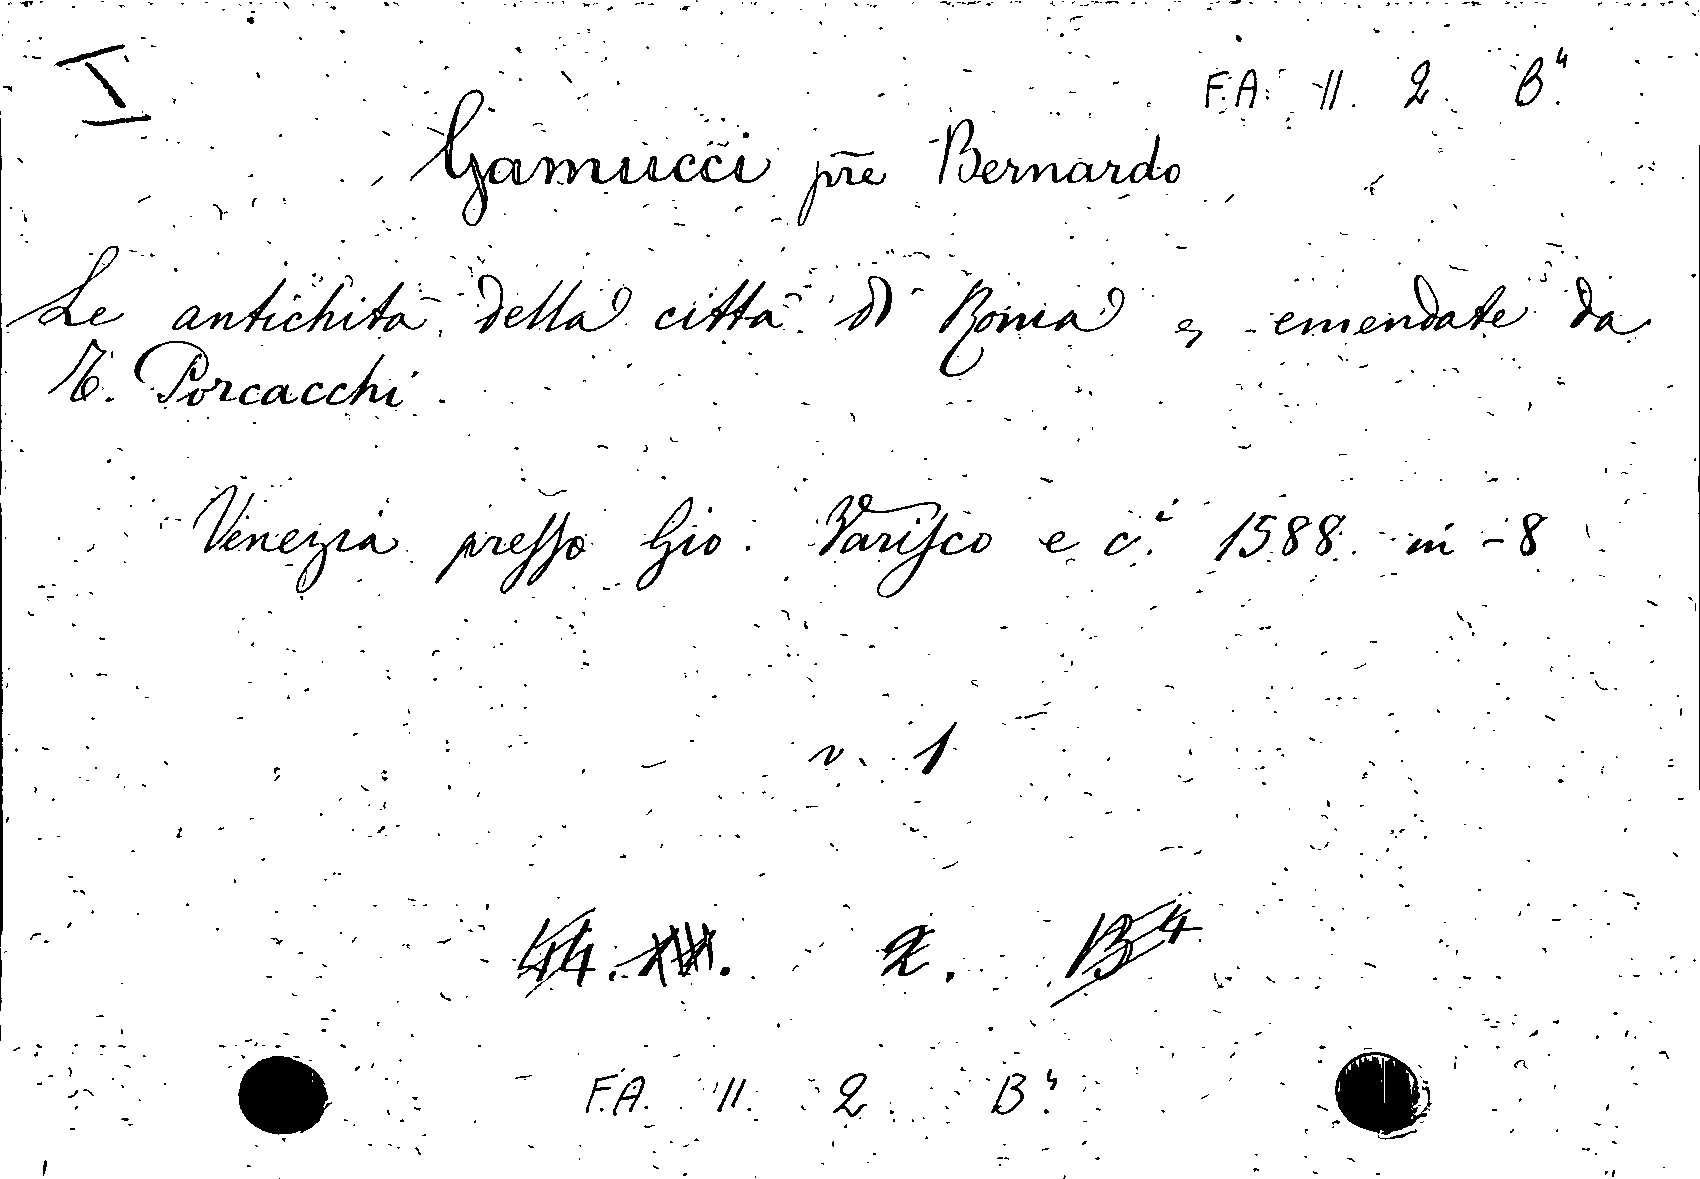 I
F.A. II. 2. B.⁴
Gamucci pre Bernardo
Le antichità della città di Roma e, emendate da
T. Porcacchi
Venezia presso Gio. Varisco e c.i 1588. in-8
v. 1
44. XII. 2. B⁴
F.A. II. 2. B.⁴